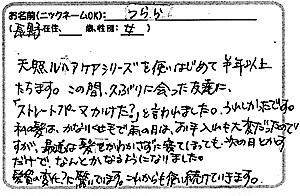 お名前(ニックネームOK): つらら
(長野在住、 歳、性別: 女)
天然ヘアケアシリーズを使いはじめて半年以上
たちます。この間、久ぶりに会った友達に、
「ストレートパーマかけた?」と言われました。うれしかったです。
私の髪は、かなりくせ毛で雨の日は、お手入れも大変だったので
すが、最近は髪でかわかさずに寝てしまっても、次の日とかす
だけで、なんとかなるようになりました。
髪質の変化に驚いています。これからも使い続けていきます。